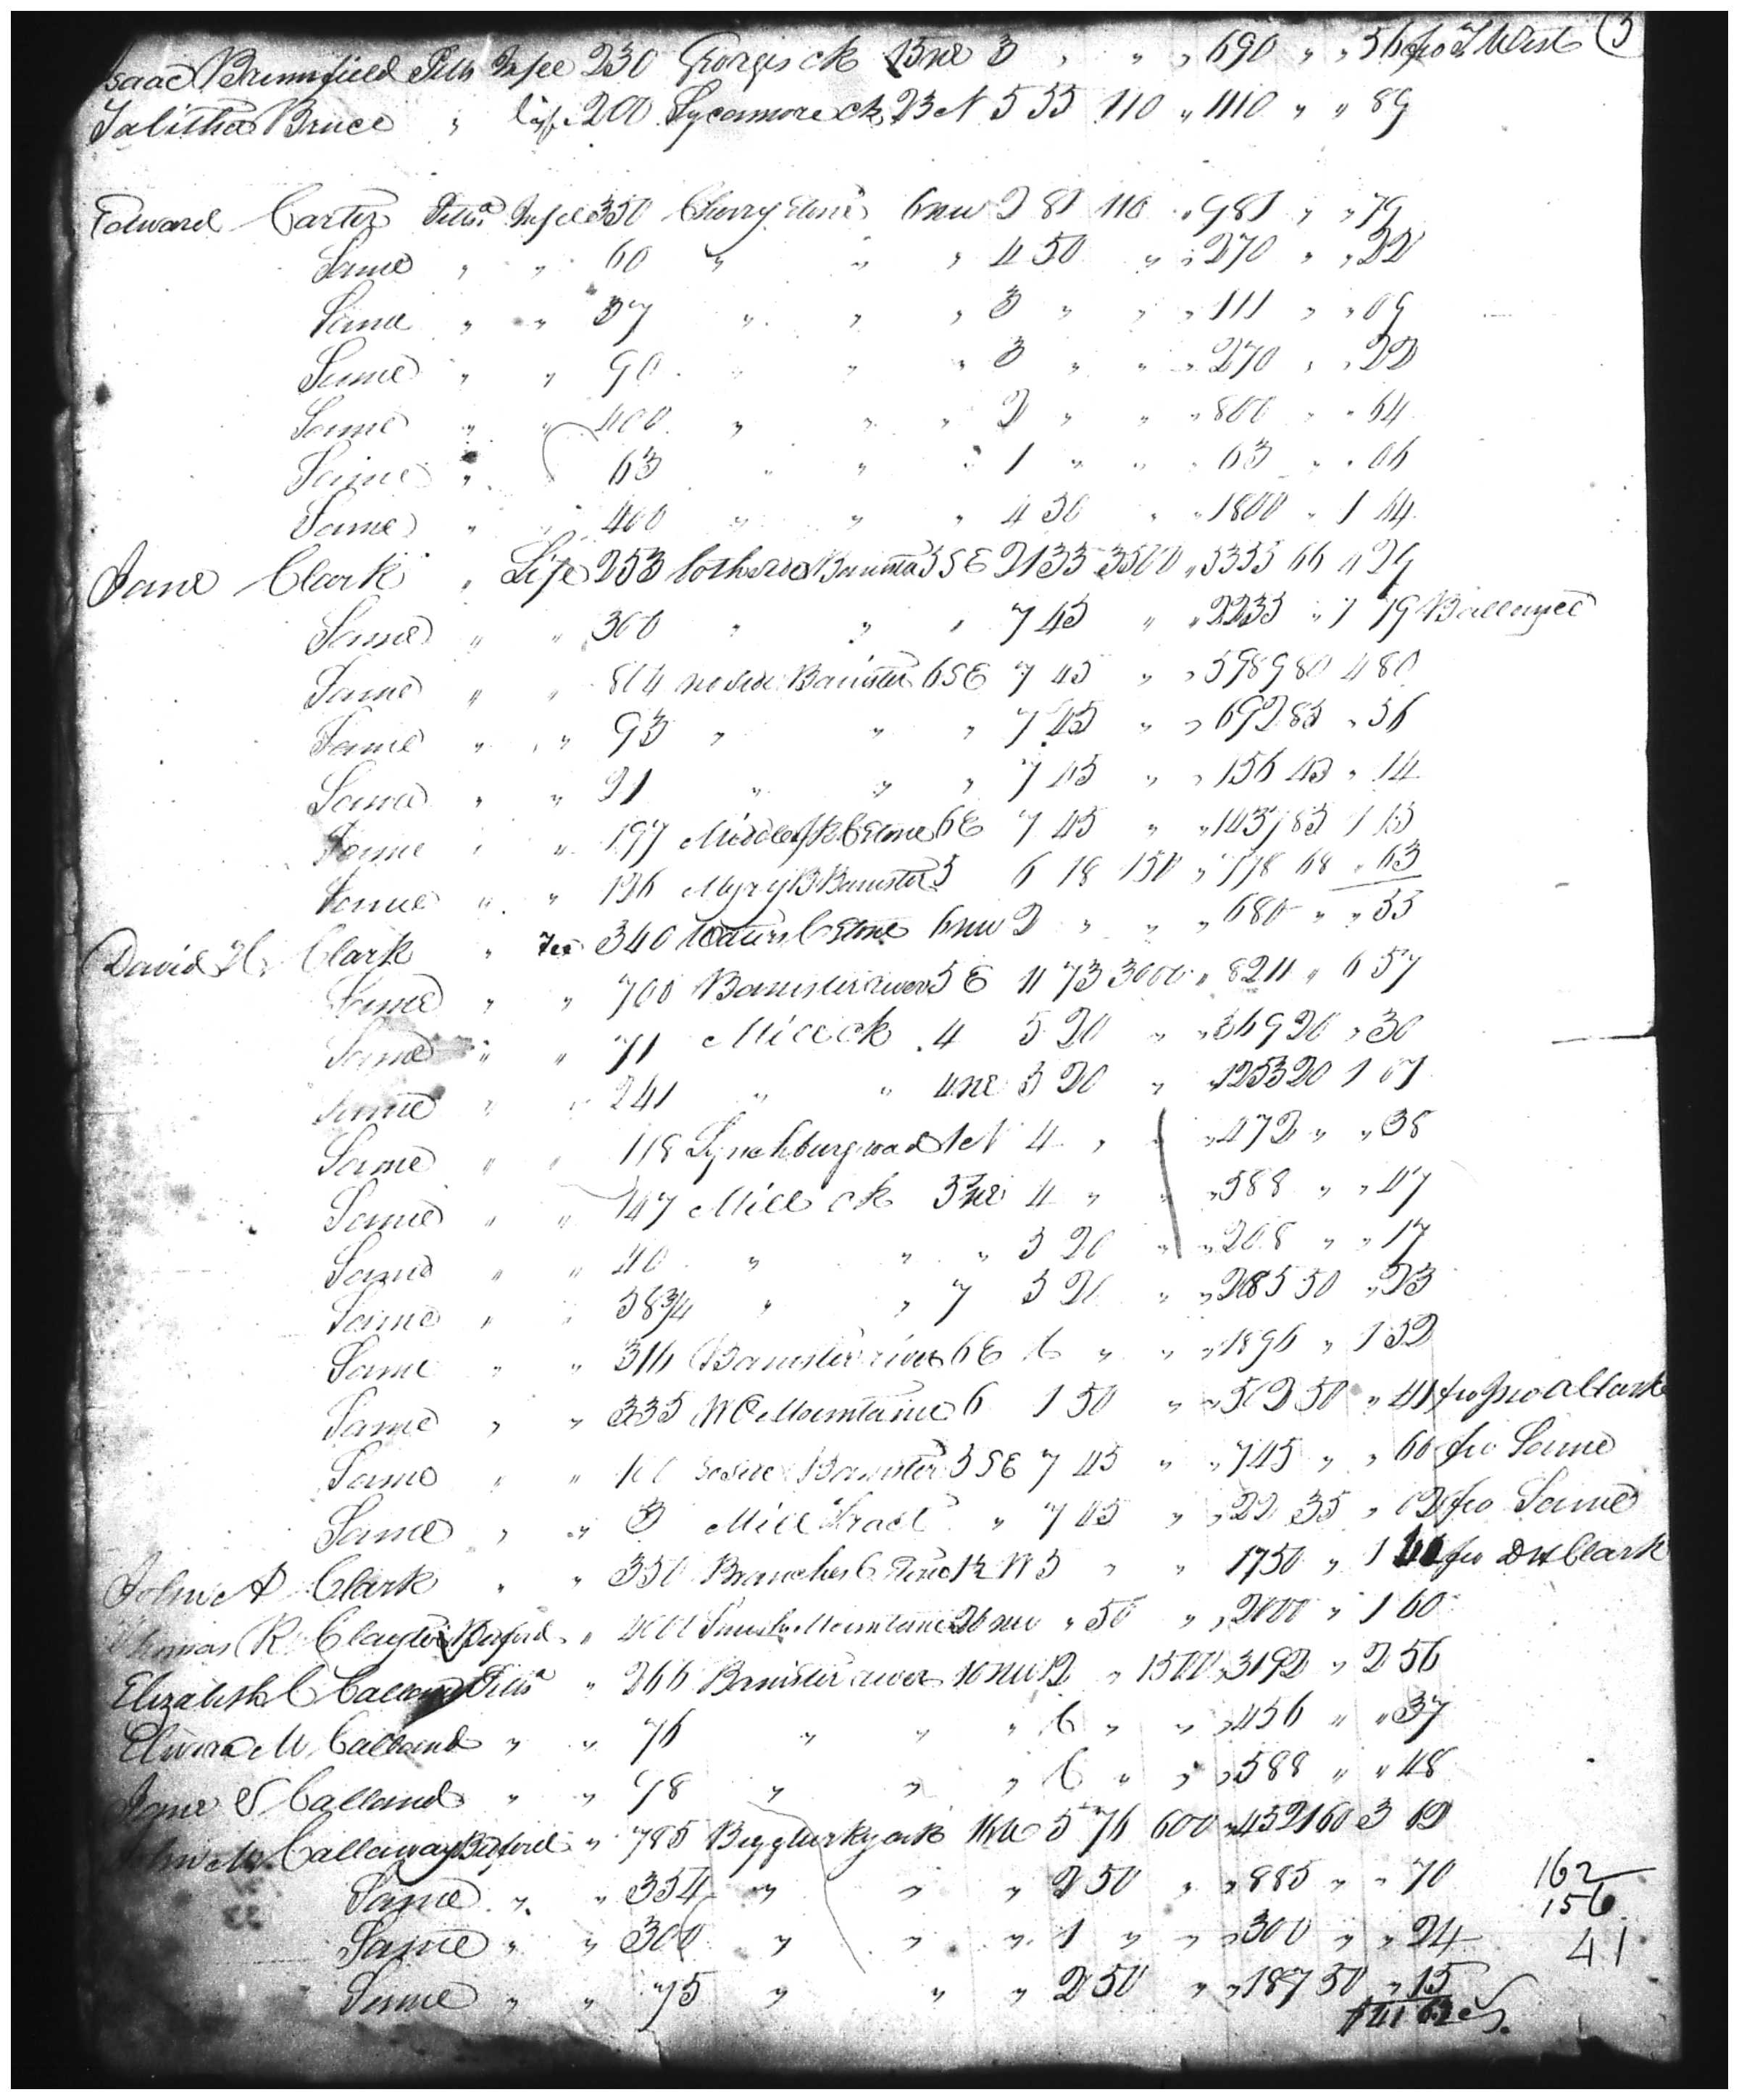 Isaac Brumfield Pitts In fee 230 Georges ck 13 ne 3 " " " 690 " " 56 fro T West (5
Talitha Bruce " life 200 Sycamore ck 23 N 5 55 110 " 1110 " " 89
Edward Carter Pitts In fee 350 Cherry Stone 6 nw 2 81 110 " 981 " " 79
Same " " 60 " " " 4 50 " " 270 " " 22
Same " " 37 " " " 3 " " " 111 " " 09
Same " " 90 " " " 3 " " " 270 " " 22
Same " " 400 " " " 2 " " " 800 " " 64
Same " 63 " " " 1 " " " 63 " " 06
Same " " 400 " " " 4 50 " " 1800 " 1 44
Jane Clark " Life 253 both sides Banister 5 SE 21 33 3500 " 5355 66 4 29
Same " " 300 " " " 7 45 " " 2235 " 1 79
Same " " 804 no side Banister 6 SE 7 45 " " 5989 80 4 80
Same " " 93 " " " 7 45 " " 692 85 " 56
Same " " 21 " " " 7 45 " " 156 45 " 14
Same " " 197 Middle fk C Stone 6 E 7 45 " " 1437 85 1 15
Same " " 126 Banister 5 6 18 150 " 778 68 " 63
David H. Clark " Fee 340 Waters C Stone 6 nw 2 " " " 680 " " 55
Same " " 700 Banister river 5 E 11 73 3000 " 8211 " 6 57
Same " " 71 Mill ck 4 5 20 " " 369 20 " 30
Same " " 241 " " 4 ne 5 20 " 1253 20 1 01
Same " " 118 Lynchburg road 1 N 4 " " " 472 " " 38
Same " " 147 Mill ck 5 ne 4 " " " 588 " " 47
Same " " 40 " " " 5 20 " " 208 " " 17
Same " " 58 3/4 " " 7 5 20 " " 285 50 " 23
Same " " 316 Banister river 6 E 6 " " " 1896 " 1 52
Same " " 335 W O Mountain 6 1 50 " " 502 50 " 41 fro Jno A Clark
Same " " 100 so side Banister 5 SE 7 45 " " 745 " " 60 fro Same
Same " " 3 Mill Tract " 7 45 " " 22 35 " 02 fro Same
John A Clark " " 350 Branches C Stone 12 W 5 " " 1750 " 1 40 fro D H Clark
Thomas R. Clayton Bedford " 4000 Smith Mountain 26 nw " 50 " " 2000 " 1 60
Elizabeth C Calland Pitts " 266 Banister river 10 nw 12 " 1500 " 3192 " 2 56
M Calland " " 76 " " " 6 " " " 456 " " 37
Jane S Calland " " 98 " " " 6 " " " 588 " " 48
John M. Callaway Bedford " 785 Bigg Turkey ck 5 76 600 " 4521 60 3 62
Same " " 354 " " " 2 50 " " 885 " " 70
Same " " 300 " " " 1 " " " 300 " " 24
Same " " 75 " " " 2 50 " " 187 50 " 15
162
156
41
$41 62